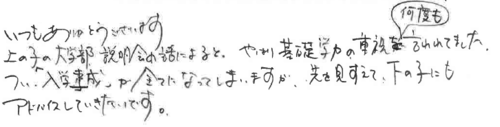 いつもありがとうございます
何度も
上の子の大学部説明会の話によると、やはり基礎学力の重視を言われてました。
つい、"入学準備"が全てになってしまいますが、先を見すえて、下の子にも
アドバイスしていきたいです。